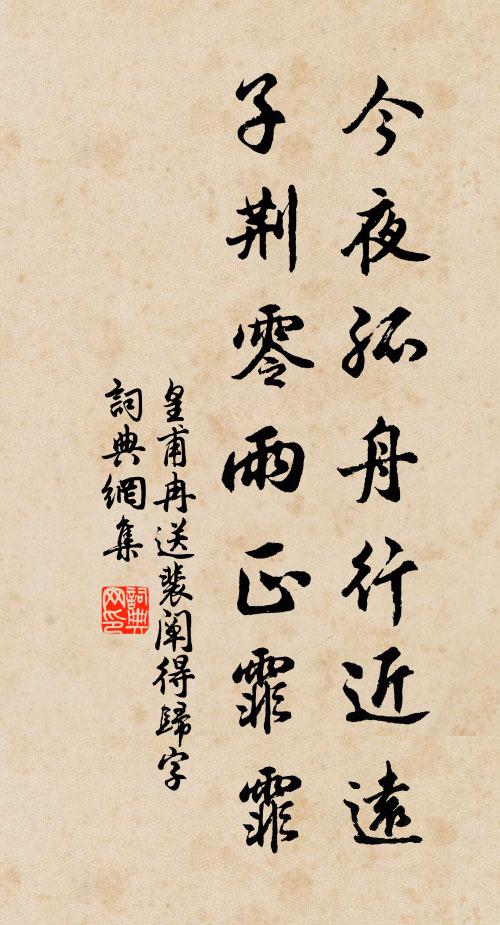 今夜孤舟行近遠
子荆零雨正霏霏
皇甫冉送裴闡得歸字
詞典網集
詞典网印